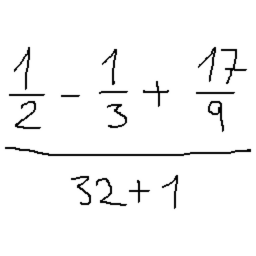 1/2 - 1/3 + 17/9
32+1